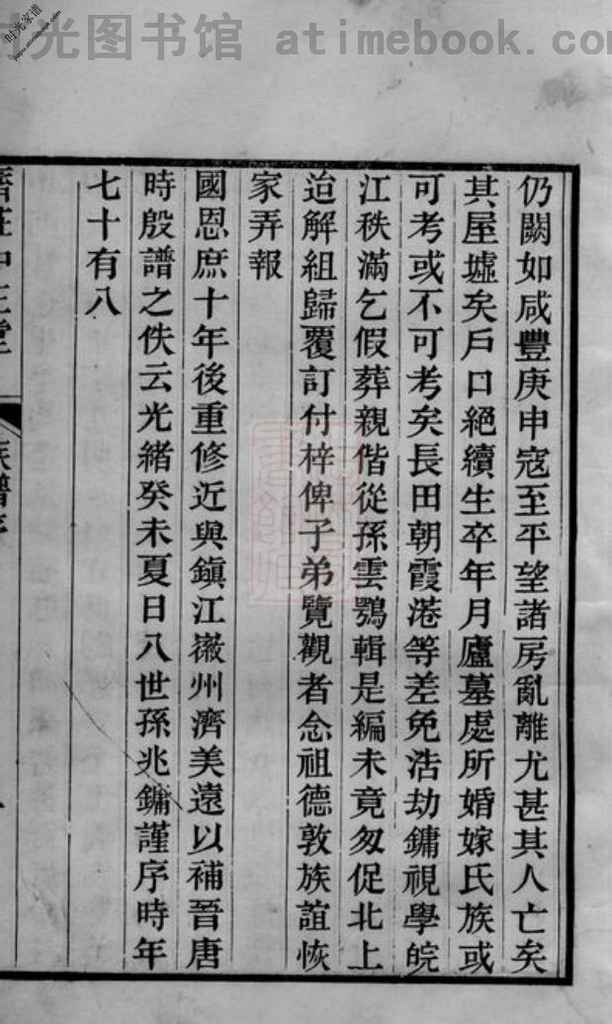 时光图书馆 atimebook.com
时光家谱
仍闕如咸豐庚申寇至平望諸房亂離尤甚其人亡矣
其屋墟矣戶口絕續生卒年月廬墓處所婚嫁氏族或
可考或不可考矣長田朝霞港等差免浩劫鏞視學皖
江秩滿乞假葬親偕從孫雲鶚輯是編未竟匆促北上
迨解組歸覆訂付梓俾子弟覽觀者念祖德敦族誼恢
家弄報
國恩庶十年後重修近與鎮江徽州濟美遠以補晉唐
時殷譜之佚云光緒癸未夏日八世孫兆鏞謹序時年
七十有八
族譜序